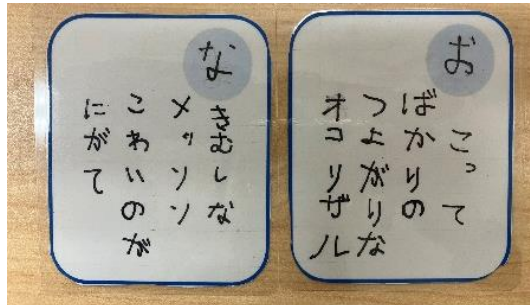 お
こって
ばかりの
つよがりな
オコリザル
な
きむしな
メソソソ
こわいのが
にがて